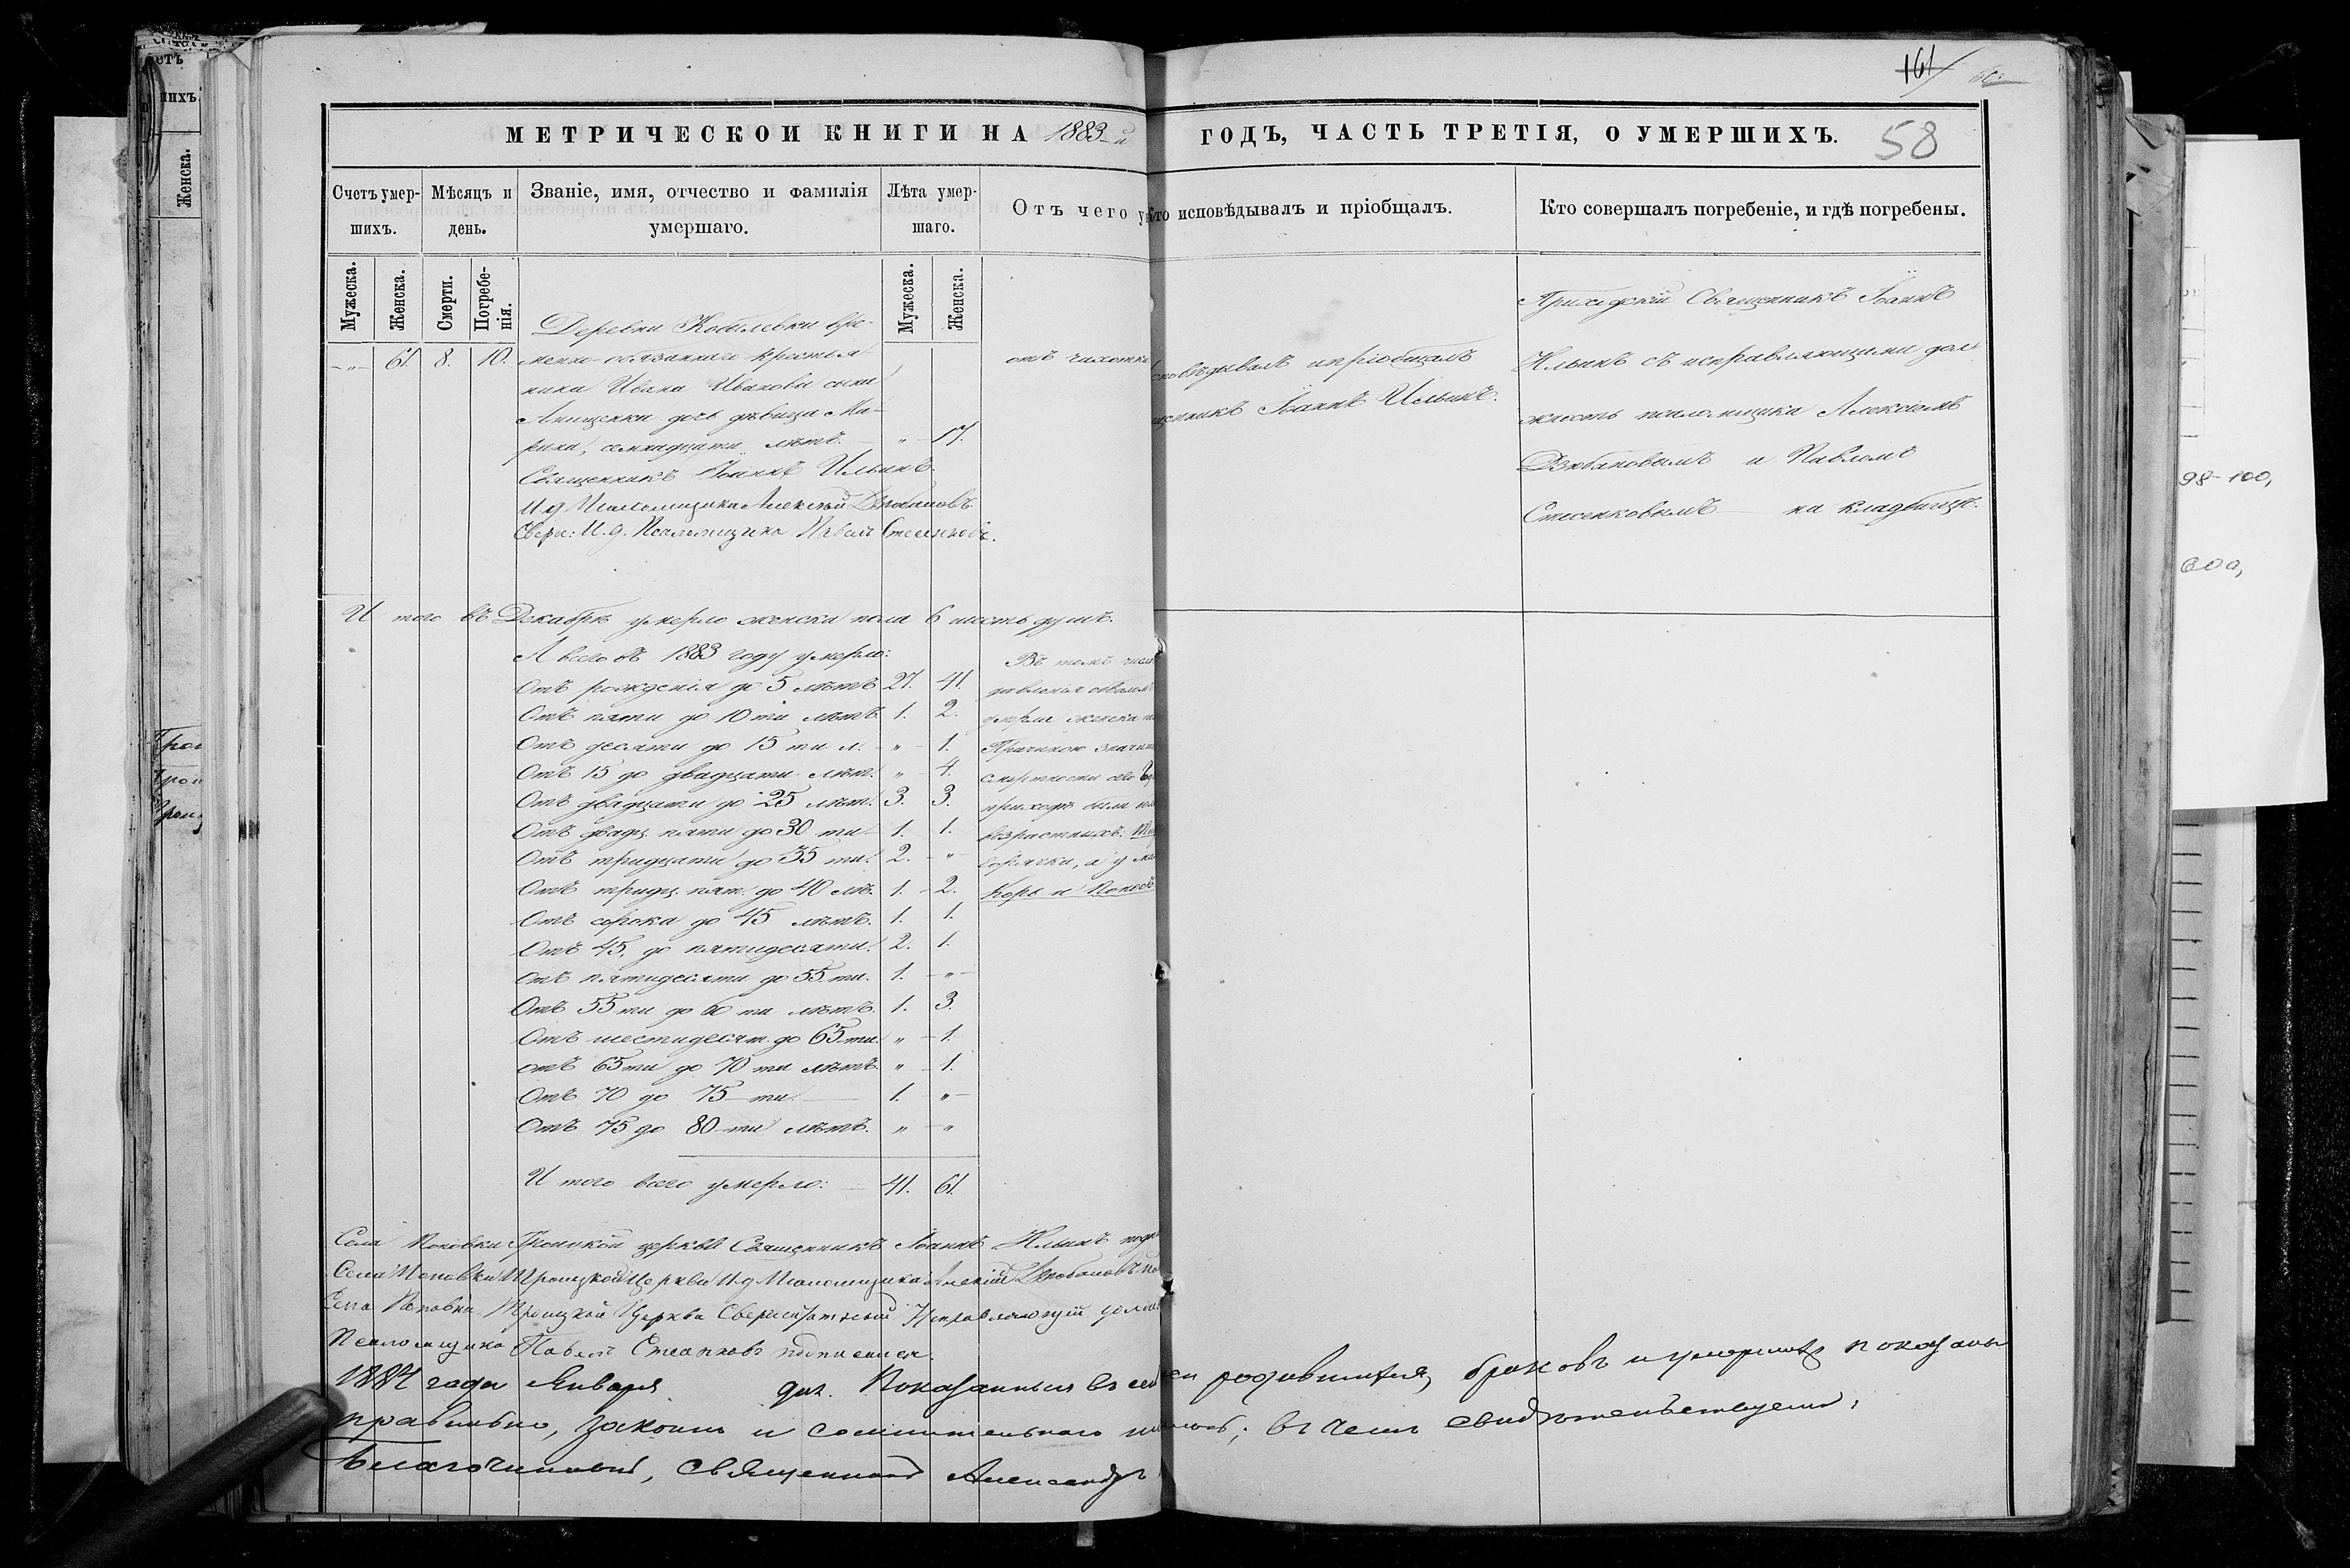 161
58
МЕТРИЧЕСКОЙ КНИГИ НА 1883-й ГОДЪ, ЧАСТЬ ТРЕТІЯ, О УМЕРШИХЪ.
Счетъ умершихъ.
Мѣсяцъ и день.
Званіе, имя, отчество и фамилія умершаго.
Лѣта умершаго.
Отъ чего у
Кто исповѣдывалъ и пріобщалъ.
Кто совершалъ погребеніе, и гдѣ погребены.
Мужеска.
Женска.
Смерти.
Погребенія.
Мужеска.
Женска.
-„- 61. 8. 10.
Деревни Кобылевки вре-
менно-обязаннаго крестья
нина Ивана Иванова сына
Анищенки дочь дѣвица Ма-
рина, семнадцати лѣтъ. - „ - 17.
Священникъ Іоаннъ Ильинъ.
И. д. Псаломщика Алексѣй Дзюбановъ.
Сверх: И. д. Псаломщика Павелъ
отъ чахотки
споведывалъ и пріобщалъ
щенникъ Іоаннъ Ильинъ.
Приходскій Священникъ Іоаннъ
Ильинъ съ исправляющими дол
жность псаломщика Алексіемъ
Дзюбановымъ и Павломъ
на кладбищѣ.
И того въ Декабрѣ умерло женска пола 6 шесть душъ.
А всего въ 1883 году умерло:
Отъ рожденія до 5 лѣтъ 27. 41.
Отъ пяти до 10 ти лѣтъ. 1. 2.
Отъ десяти до 15 ти л. - „ - 1.
Отъ 15 до двадцати лѣт. „ - 4.
Отъ двадцати до 25 лѣт. 3. 3.
Отъ двадц. пяти до 30 ти 1. 1.
Отъ тридцати до 35 ти. 2. - „ -
Отъ тридц. пят. до 40 лѣ. 1. - 2.
Отъ сорока до 45 лѣтъ. 1. 1.
Отъ 45. до пятидесяти. 2. 1.
Отъ пятидесяти до 55 ти. 1. - „ -
Отъ 55 ти до 60 ти лѣтъ. 1. 3.
Отъ шестидесят. до 65 ти. „ - 1.
отъ 65 ти до 70 ти лѣтъ. „ - 1.
Отъ 70 до 75 ти. 1. „ -
Отъ 75 до 80 ти лѣтъ. „ - „
И того всего умерло: 41. 61.
Въ томъ числ
умерла женска
Причиною
смертности сего
приходѣ были
возрастныхъ.
горячки, а у
Корь и Поносъ
Села Поповки Троицкой церкви Священникъ Іоаннъ Ильинъ
Села Поповки Троицкой Церкви И. д. Псаломщика Алексій Дзюбановъ
Села Поповки Троицкой Церкви Сверхштатный Исправляющій
Псаломщика Павелъ подписался.
1884 года Января дня. Показанныя въ сей родившихся, браковъ и умершихъ показаны
правильно, законно и сомнительнаго ; въ чемъ свидѣтельствуемъ.
Благочинный, Священникъ Александръ
98-100,
600,